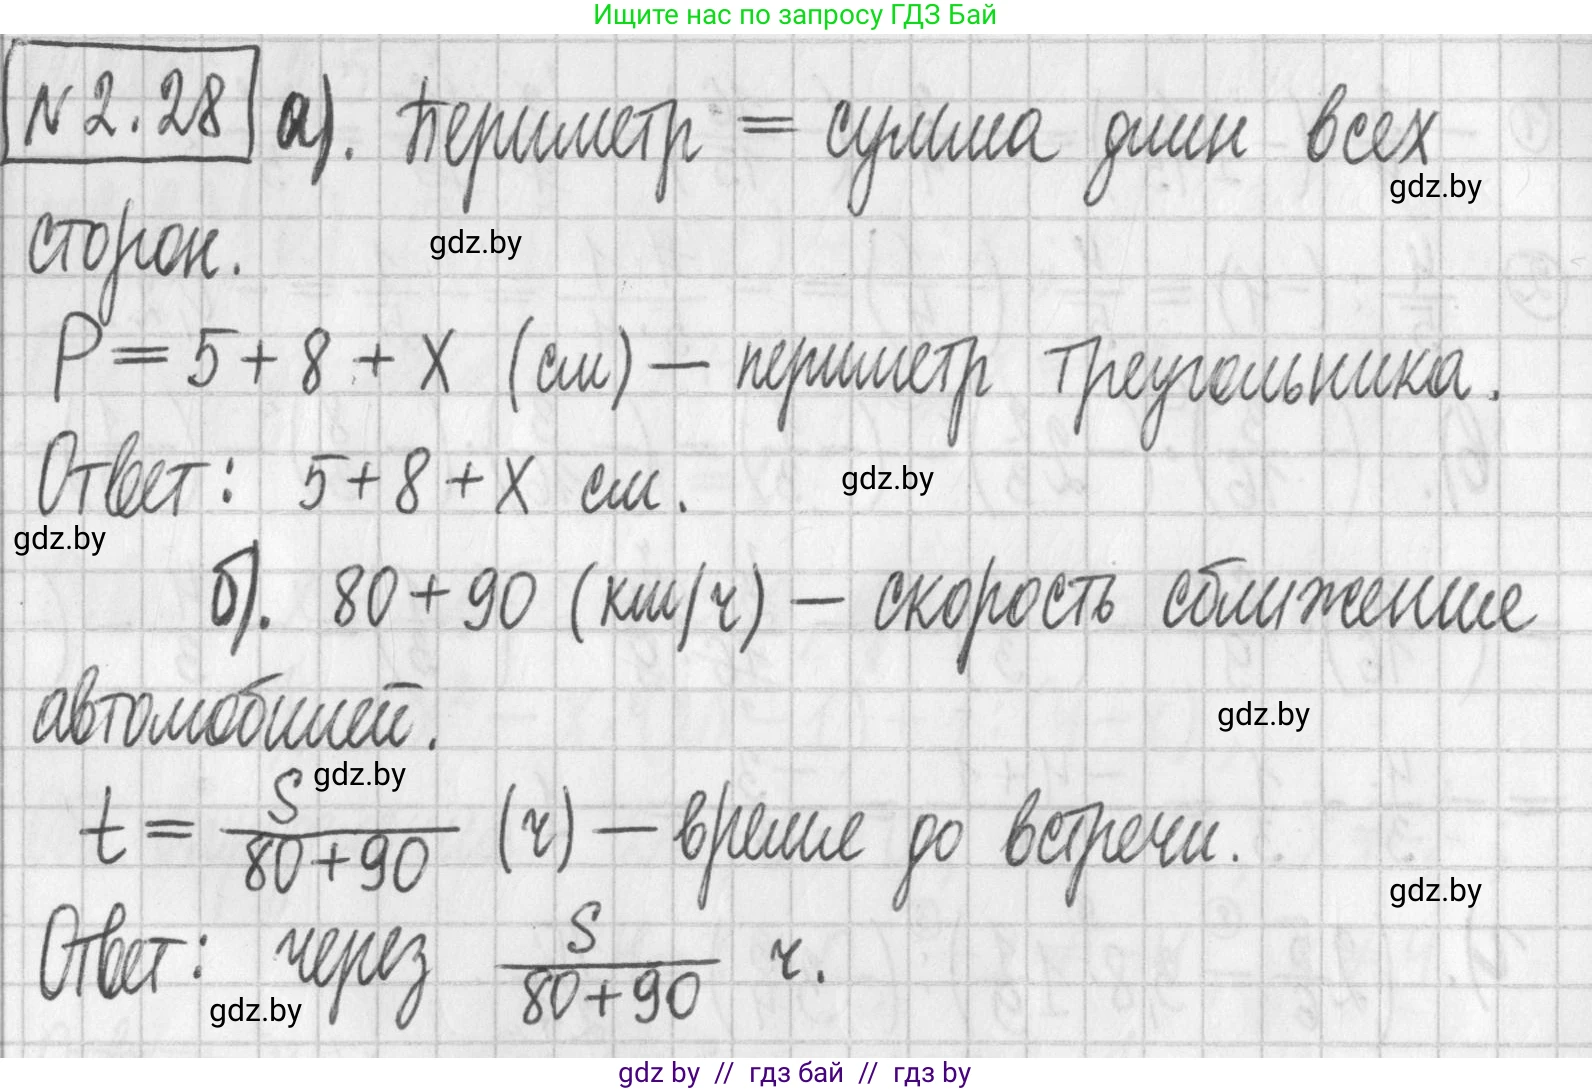 Ищите нас по запросу ГДЗ Бай
N 2.28 а). Периметр = сумма длин всех
gdz.by
сторон.
gdz.by
P = 5 + 8 + x (см) — периметр треугольника.
Ответ: 5 + 8 + x см.
gdz.by
gdz.by
б). 80 + 90 (км/ч) — скорость сближение
автомобилей.
gdz.by
gdz.by
t = S / (80 + 90) (ч) — време до встречи.
gdz.by
Ответ: через S / (80 + 90) ч.
gdz.by
gdz by // гдз бай // гдз by